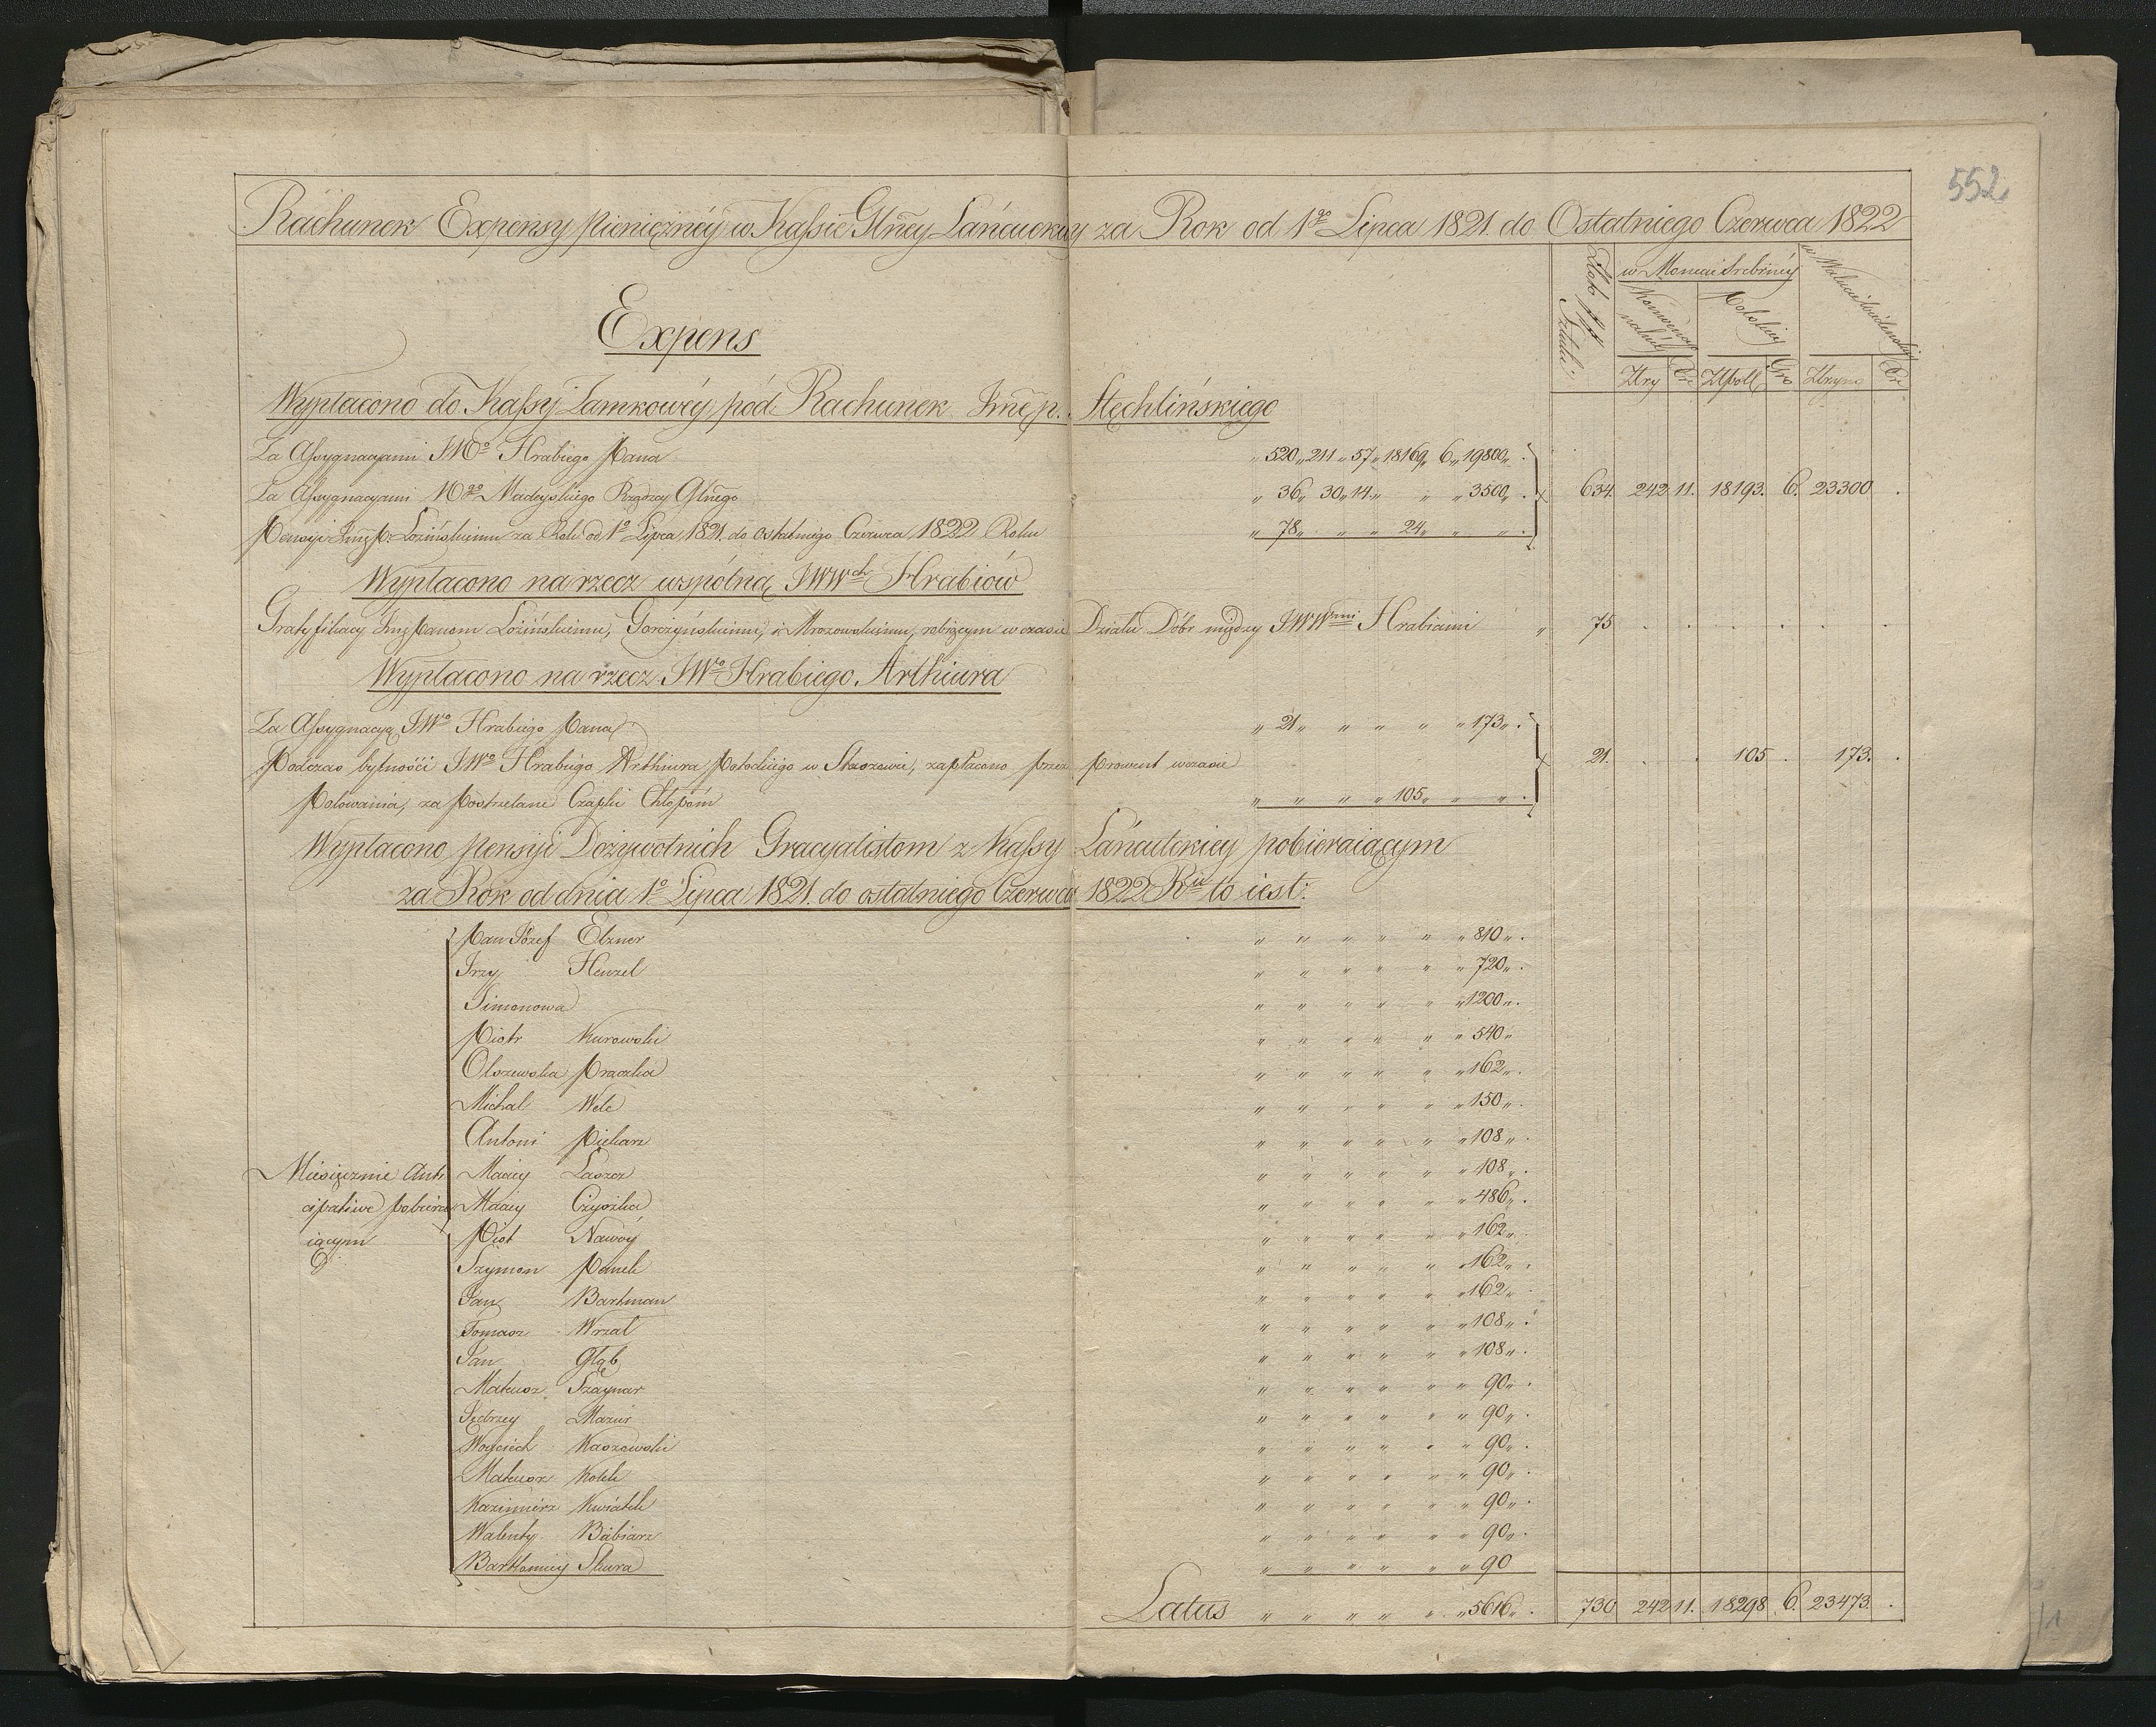 552
Rachunek Expensy pienięznéy w Kassie Głney Łańcuckiey za Rok od 1go Lipca 1821. do Ostatniego Czerwca 1822
Złoto Sztuki w Monecie Srebrnéy w Walucie Wiedeńskiey
Konwencyonalnéy Polskiey
Złry Cr Złpoll Gro Złryns Cr
Expens
Wypłacono do Kassy Zamkowéy pód Rachunek Jmćp. Stęchlińskiego
Za Assygnacyami JWo Hrabiego Pana „ 520 „ 211 „ 57 „ 18169 „ 6 „ 19800 „ .
Za Assygnacyami Wgo Madeyskiego Rządzcy Głnego „ 36 „ 30 „ 14 „ „ „ 3500 „ . 634. 242 11. 18193. 6. 23300 .
Pensyi Jmćp: Łozińskiemu za Rok od 1o Lipca 1821. do ostatniego Czerwca 1822 Roku „ 78 „ „ „ 24 „ „ „ .
Wypłacono na rzecz wspólną JWWch Hrabiów
Gratyfikacyi JmćPanom Łozińskiemu, Gorczyńskiemu, i Mrozowskiemu, robiącym w czasie Działu Dóbr między JWWmi Hrabiami „ 75 . . . . . .
Wypłacono na rzecz JWo Hrabiego Arthiura
Za Assygnacyą JWo Hrabiego Pana „ 21 „ „ „ „ „ 173 „ .
Podczas bytności JWo Hrabiego Arthiura Potockiego w Staszowie, zapłacono przez prowent w czasie 21. . . 105 . 173. .
Polowania, za Postrzelane Czaple Chłopóm „ „ „ „ 105 „ „ „ .
Wypłacono pensyi Dożywotnich Gracyalistom z Kassy Łańcutckiey pobieraiącym
za Rok od dnia 1o Lipca 1821. do ostatniego Czerwca 1822 Rku to iest:
Pan Józef Elzner „ „ „ „ „ „ 810 „ .
Jrzy Henzel „ „ „ „ „ „ 720 „ .
Simonowa „ „ „ „ „ „ 1200 „ .
Piotr Kurowski „ „ „ „ „ „ 540 „
Olszewska Praczka „ „ „ „ „ „ 162 „ .
Michał Welc „ „ „ „ „ „ 150 „ .
Antoni Piekarz „ „ „ „ „ „ 108 „ .
Miesięcznie Anti Maciey Laszcz „ „ „ „ „ „ 108 „ .
cipative pobiera Maciey Czyszka „ „ „ „ „ „ 486 „ .
iącym Piot Nawóy „ „ „ „ „ „ 162 „ .
Szymon Panek „ „ „ „ „ „ 162 „ .
Jan Bartman „ „ „ „ „ „ 162 „ .
Tomasz Wrzal „ „ „ „ „ „ 108 „ .
Jan Głąb „ „ „ „ „ „ 108 „ .
Mateusz Szaynar „ „ „ „ „ „ 90 „ .
Jędrzey Mazur „ „ „ „ „ „ 90 „ .
Woyciech Kaszewski „ „ „ „ „ „ 90 „ .
Mateusz Kotek „ „ „ „ „ „ 90 „ .
Kazimiérz Kwiátek „ „ „ „ „ „ 90 „ .
Walenty Babiarz „ „ „ „ „ „ 90 „ .
Bartłomiey Skura „ „ „ „ „ „ 90
Latus „ „ „ „ „ „ 5616 „ . 730 242 11. 18298 6. 23473. .